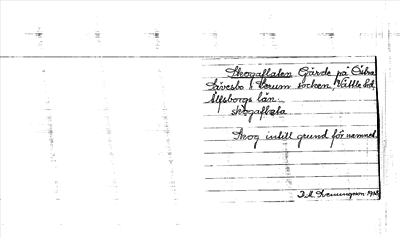 Skogaflaten Gärde på Östra
Tåvesbo i Lerum socken, Vättle hd,
Älfsborgs län.
skogaflata
Skog intill grund för namnet.